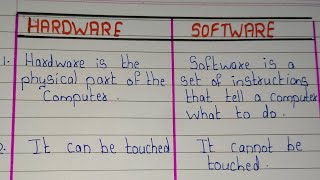 HARDWARE SOFTWARE
1. Hardware is the
physical part of the
Computer.
Software is a
set of instructions
that tell a computer
what to do.
2. It can be touched
It cannot be
touched.